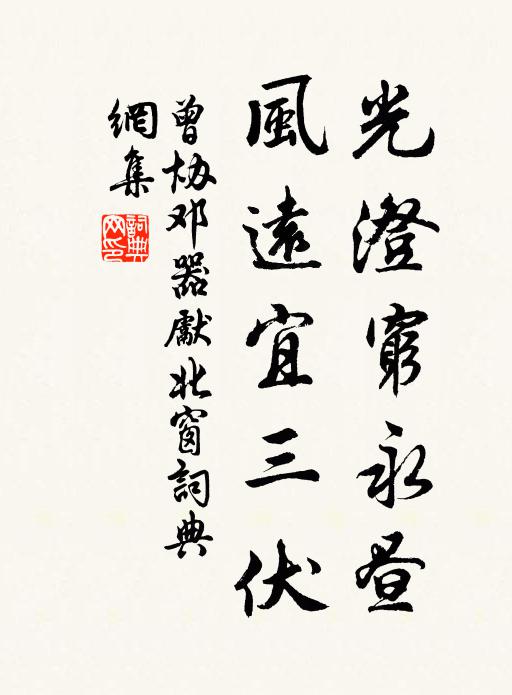 光澄窮永昼
風遠宜三伏
曾协邓器獻北窗詞典
網集
詞典網印